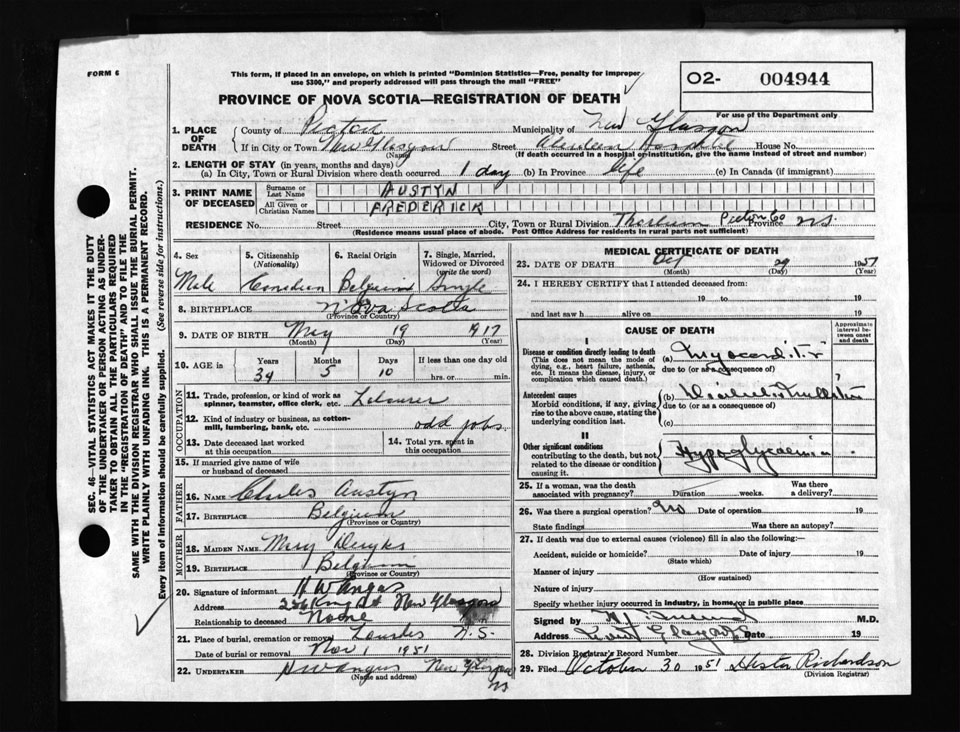 FORM 6
This form, if placed in an envelope, on which is printed "Dominion Statistics—Free, penalty for improper
use $300," and properly addressed will pass through the mail "FREE"
O2- 004944
For use of the Department only
PROVINCE OF NOVA SCOTIA—REGISTRATION OF DEATH
1. PLACE OF DEATH County of Pictou Municipality of New Glasgow
If in City or Town New Glasgow Street Aberdeen Hospital House No.
(Name) (If death occurred in a hospital or institution, give the name instead of street and number)
2. LENGTH OF STAY (in years, months and days)
(a) In City, Town or Rural Division where death occurred 1 day (b) In Province life (c) In Canada (if immigrant)
3. PRINT NAME OF DECEASED Surname or Last Name AUSTYN
All Given or Christian Names FREDERICK
RESIDENCE No. Street City, Town or Rural Division Thorburn Pictou Co Province NS.
(Residence means usual place of abode. Post Office Address for residents in rural parts not sufficient)
4. Sex Male
5. Citizenship (Nationality) Canadian
6. Racial Origin Belgium
7. Single, Married, Widowed or Divorced (write the word) Single
8. BIRTHPLACE Nova Scotia
(Province or Country)
9. DATE OF BIRTH May 19 1917
(Month) (Day) (Year)
10. AGE is Years 34 Months 5 Days 10 If less than one day old
hrs. or min.
OCCUPATION
11. Trade, profession, or kind of work as spinner, teamster, office clerk, etc. Labourer
12. Kind of industry or business, as cotton-mill, lumbering, bank, etc. odd jobs
13. Date deceased last worked at this occupation
14. Total yrs. spent in this occupation
15. If married give name of wife or husband of deceased
FATHER
16. NAME Charles Austyn
17. BIRTHPLACE Belgium
(Province or Country)
MOTHER
18. MAIDEN NAME Mary
19. BIRTHPLACE Belgium
(Province or Country)
20. Signature of informant H W Angus
Address New Glasgow
Relationship to deceased None
21. Place of burial, cremation or removal Lourdes N.S.
Date of burial or removal Nov 1 1951
22. UNDERTAKER H W Angus New Glasgow
(Name and address) NS
MEDICAL CERTIFICATE OF DEATH
23. DATE OF DEATH Oct 29 1951
(Month) (Day) (Year)
24. I HEREBY CERTIFY that I attended deceased from:
19 to 19
and last saw h alive on 19
CAUSE OF DEATH
Approximate interval between onset and death
I
Disease or condition directly leading to death (a) Myocarditis
(This does not mean the mode of dying, e.g., heart failure, asthenia, etc. It means the disease, injury, or complication which caused death.)
due to (or as a consequence of)
Antecedent causes (b) ?
Morbid conditions, if any, giving rise to the above cause, stating the underlying condition last.
due to (or as a consequence of)
(c)
II
Other significant conditions Hypoglycaemia
contributing to the death, but not related to the disease or condition causing it.
25. If a woman, was the death associated with pregnancy? Duration weeks. Was there a delivery?
26. Was there a surgical operation? No Date of operation 19
State findings Was there an autopsy?
27. If death was due to external causes (violence) fill in also the following:—
Accident, suicide or homicide? Date of injury 19
(State which)
Manner of injury
(How sustained)
Nature of injury
Specify whether injury occurred in industry, in home, or in public place
Signed by M.D.
Address Date 19
28. Division Registrar's Record Number
29. Filed October 30 1951 Hester Richardson
(Division Registrar)
SEC. 46—VITAL STATISTICS ACT MAKES IT THE DUTY
OF THE UNDERTAKER OR PERSON ACTING AS UNDER-
TAKER TO OBTAIN ALL THE PARTICULARS REQUIRED
IN THE "REGISTRATION OF DEATH" AND TO FILE THE
SAME WITH THE DIVISION REGISTRAR WHO SHALL ISSUE THE BURIAL PERMIT.
WRITE PLAINLY WITH UNFADING INK. THIS IS A PERMANENT RECORD.
Every item of information should be carefully supplied. (See reverse side for instructions.)